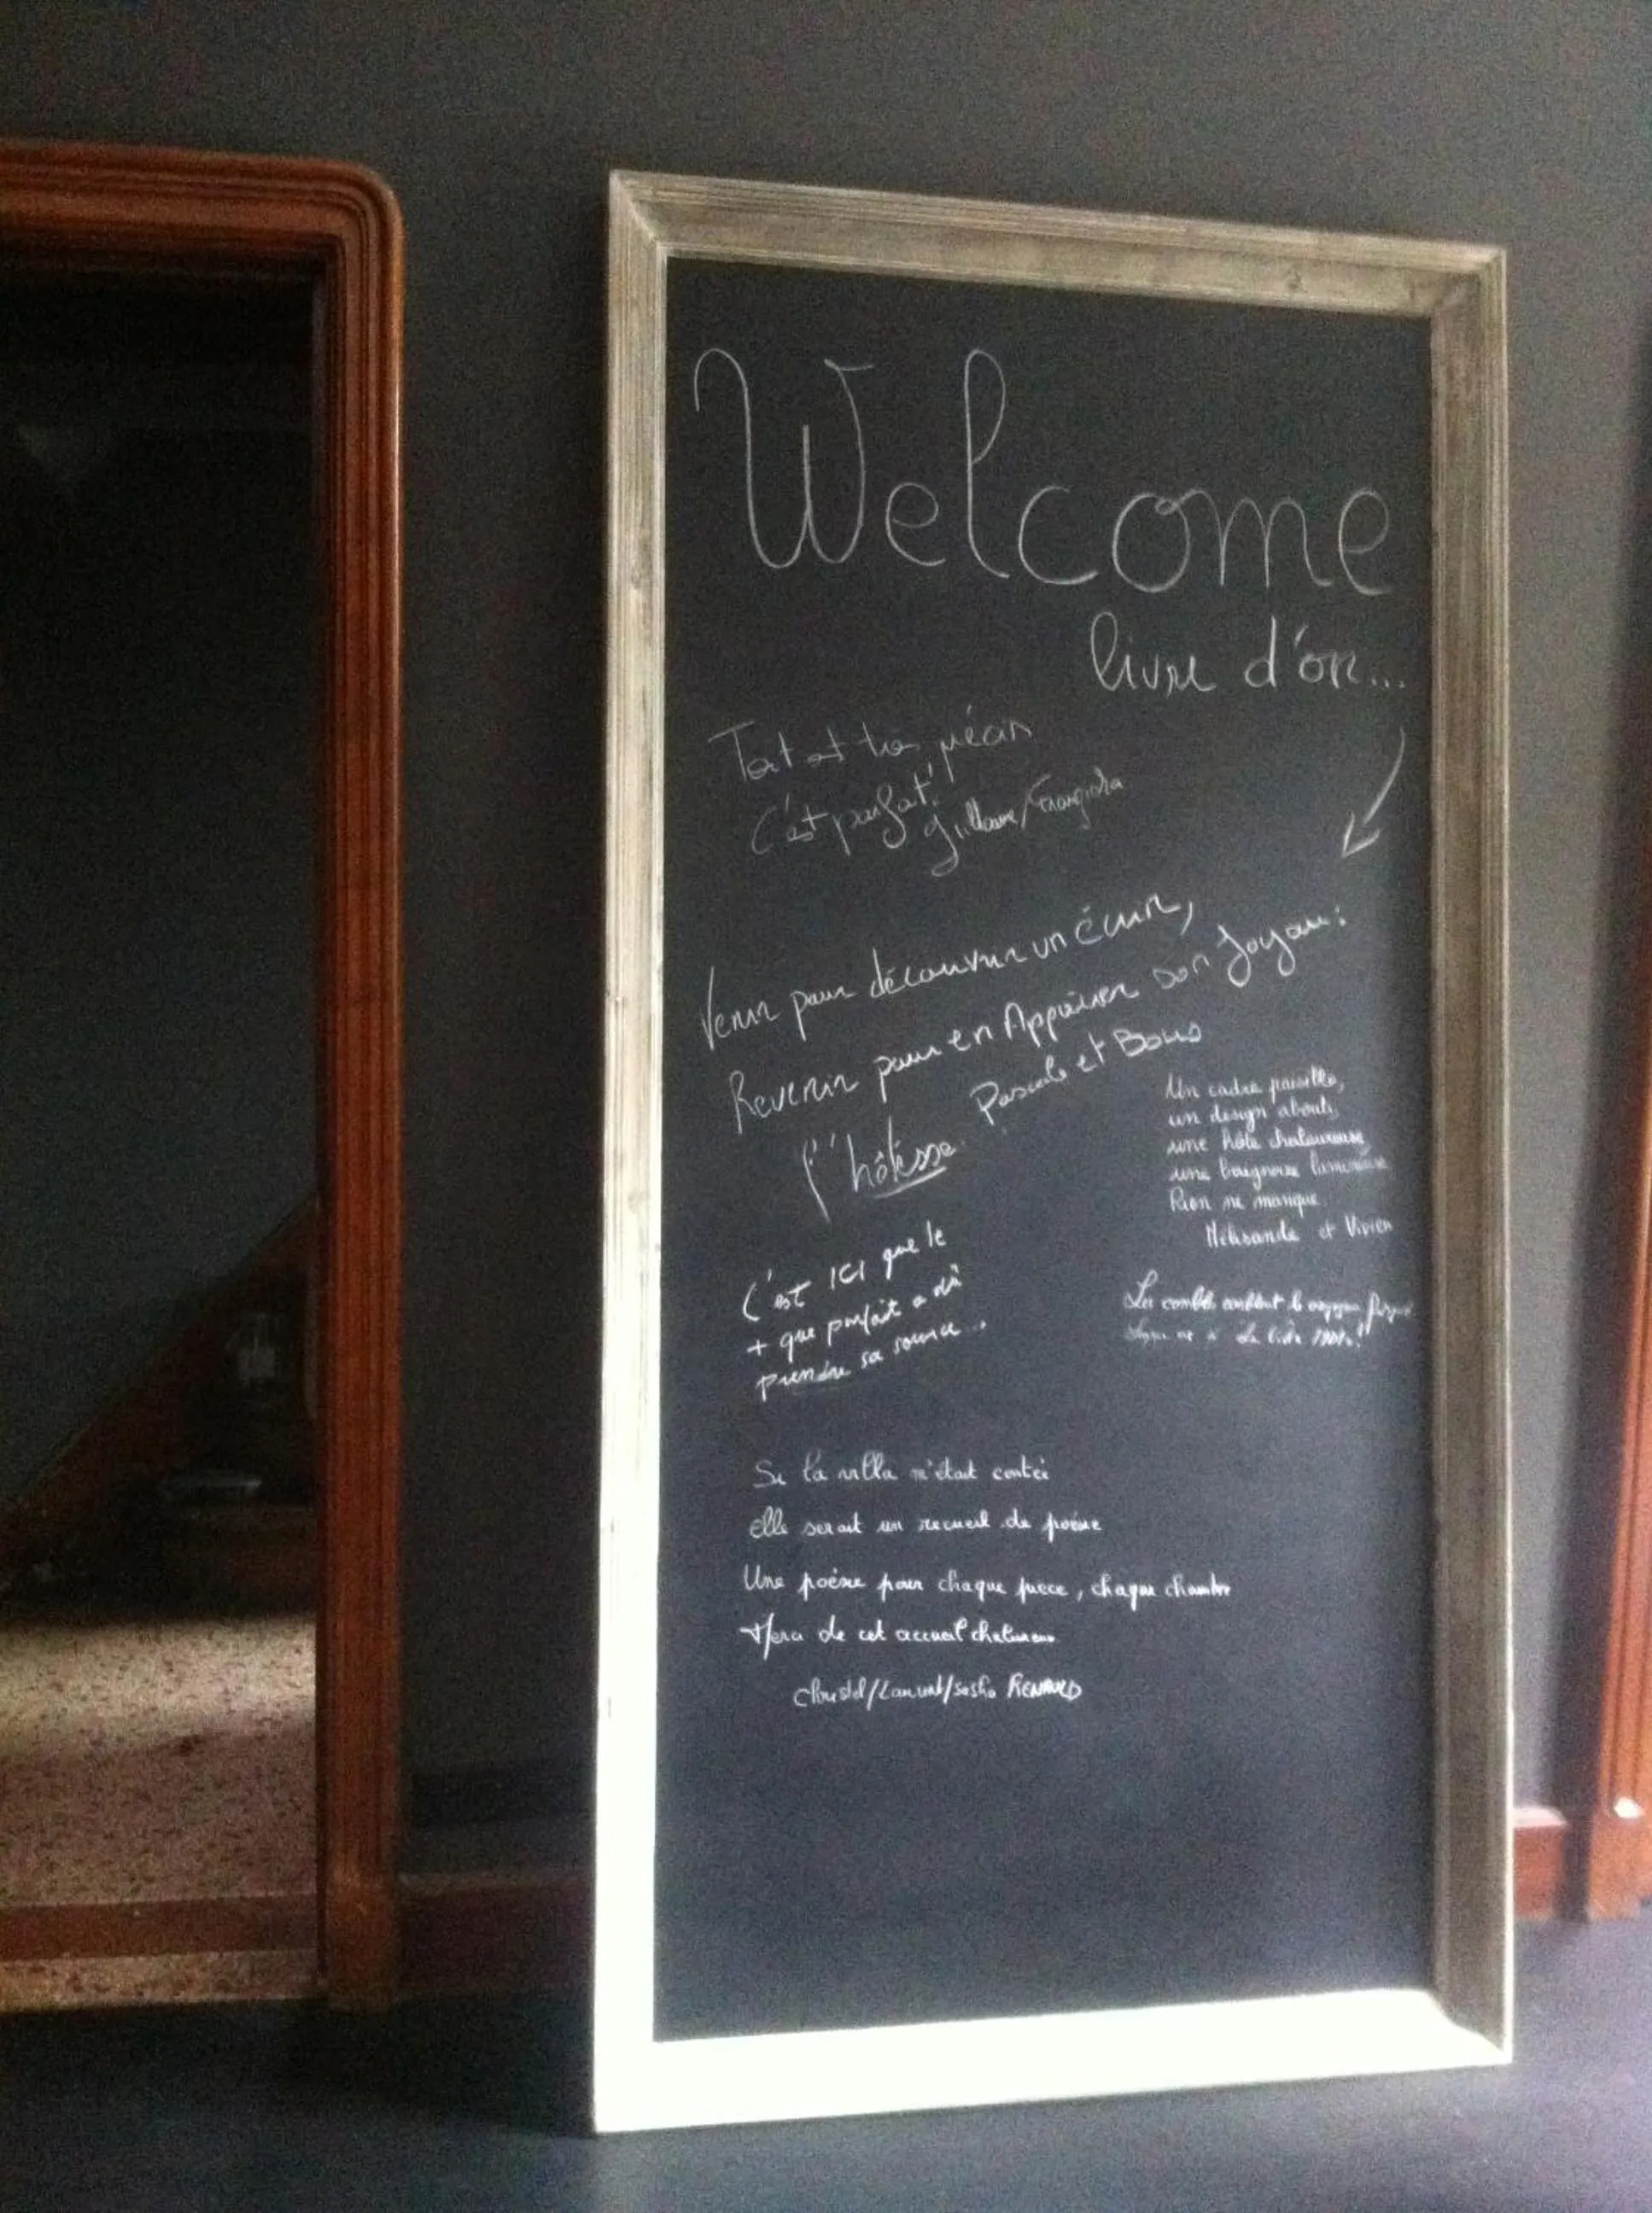 Welcome
livre d'or...
Tout est très
C'est parfait
Venir pour découvrir un écrin,
Revenir pour en Apprécier son Joyau:
l'hôtesse. Pascale et
Un cadre paisible,
un design abouti
une hôte chaleureuse
une baignoire lumineuse
Rien ne manque
Mélisande et Vivien
C'est ICI que le
+ que parfait a dû
prendre sa source...
Les combles comblent le
Si la villa m'était contée
elle serait un recueil de poème
Une poème pour chaque pièce, chaque chambre
de cet accueil chaleureux
Christel/Laurent/Sasha RENAULD